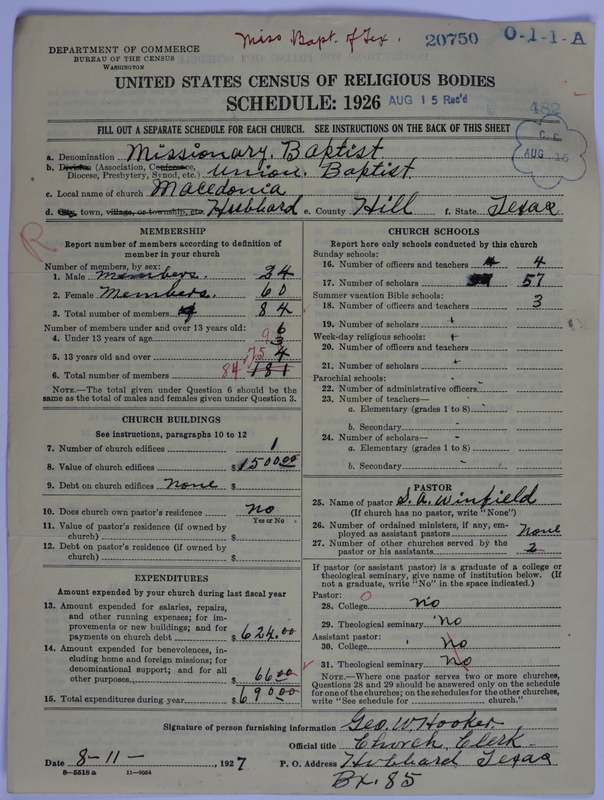 Miss Bapt. of Tex.
20750
O-1-1-A
DEPARTMENT OF COMMERCE
BUREAU OF THE CENSUS
WASHINGTON
UNITED STATES CENSUS OF RELIGIOUS BODIES
SCHEDULE: 1926
AUG 15 Rec'd
482
FILL OUT A SEPARATE SCHEDULE FOR EACH CHURCH. SEE INSTRUCTIONS ON THE BACK OF THIS SHEET
C. C.
AUG 15
a. Denomination Missionary. Baptist
b. Division (Association, Conference, Diocese, Presbytery, Synod, etc.) Union. Baptist
c. Local name of church Macedonia
d. City, town, village, or township, etc. Hubbard e. County Hill f. State Texas
R
MEMBERSHIP
Report number of members according to definition of
member in your church
Number of members, by sex:
1. Male Members. 24
2. Female Members. 60
3. Total number of members 84
Number of members under and over 13 years old:
4. Under 13 years of age 9 6 3
5. 13 years old and over 75 4
6. Total number of members 84 181
NOTE.—The total given under Question 6 should be the
same as the total of males and females given under Question 3.
CHURCH BUILDINGS
See instructions, paragraphs 10 to 12
7. Number of church edifices 1
8. Value of church edifices $1500.00
9. Debt on church edifices none $
10. Does church own pastor's residence no
Yes or No
11. Value of pastor's residence (if owned by
church) $
12. Debt on pastor's residence (if owned by
church) $
EXPENDITURES
Amount expended by your church during last fiscal year
13. Amount expended for salaries, repairs,
and other running expenses; for im-
provements or new buildings; and for
payments on church debt $ 624.00
14. Amount expended for benevolences, in-
cluding home and foreign missions; for
denominational support; and for all
other purposes $ 66.00
15. Total expenditures during year $690.00
CHURCH SCHOOLS
Report here only schools conducted by this church
Sunday schools:
16. Number of officers and teachers 4
17. Number of scholars 57
Summer vacation Bible schools:
18. Number of officers and teachers 3
19. Number of scholars
Week-day religious schools:
20. Number of officers and teachers
21. Number of scholars
Parochial schools:
22. Number of administrative officers
23. Number of teachers—
a. Elementary (grades 1 to 8)
b. Secondary
24. Number of scholars—
a. Elementary (grades 1 to 8)
b. Secondary
PASTOR
25. Name of pastor S. A. Winfield
(If church has no pastor, write "None")
26. Number of ordained ministers, if any, em-
ployed as assistant pastors None
27. Number of other churches served by the
pastor or his assistants 2
If pastor (or assistant pastor) is a graduate of a college or
theological seminary, give name of institution below. (If
not a graduate, write "No" in the space indicated.)
Pastor: O
28. College no
29. Theological seminary no
Assistant pastor:
30. College no
31. Theological seminary no
NOTE.—Where one pastor serves two or more churches,
Questions 28 and 29 should be answered only on the schedule
for one of the churches; on the schedules for the other churches,
write "See schedule for church."
Signature of person furnishing information Geo. W Hooker
Official title Church Clerk
Date 8-11-, 1927 P. O. Address Hubbard Texas
8—5518 a 11—9054
Bx. 85